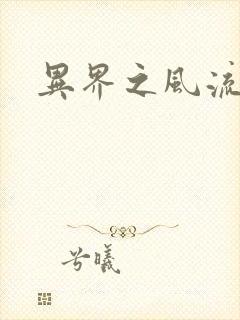 異界之風流
兮曦